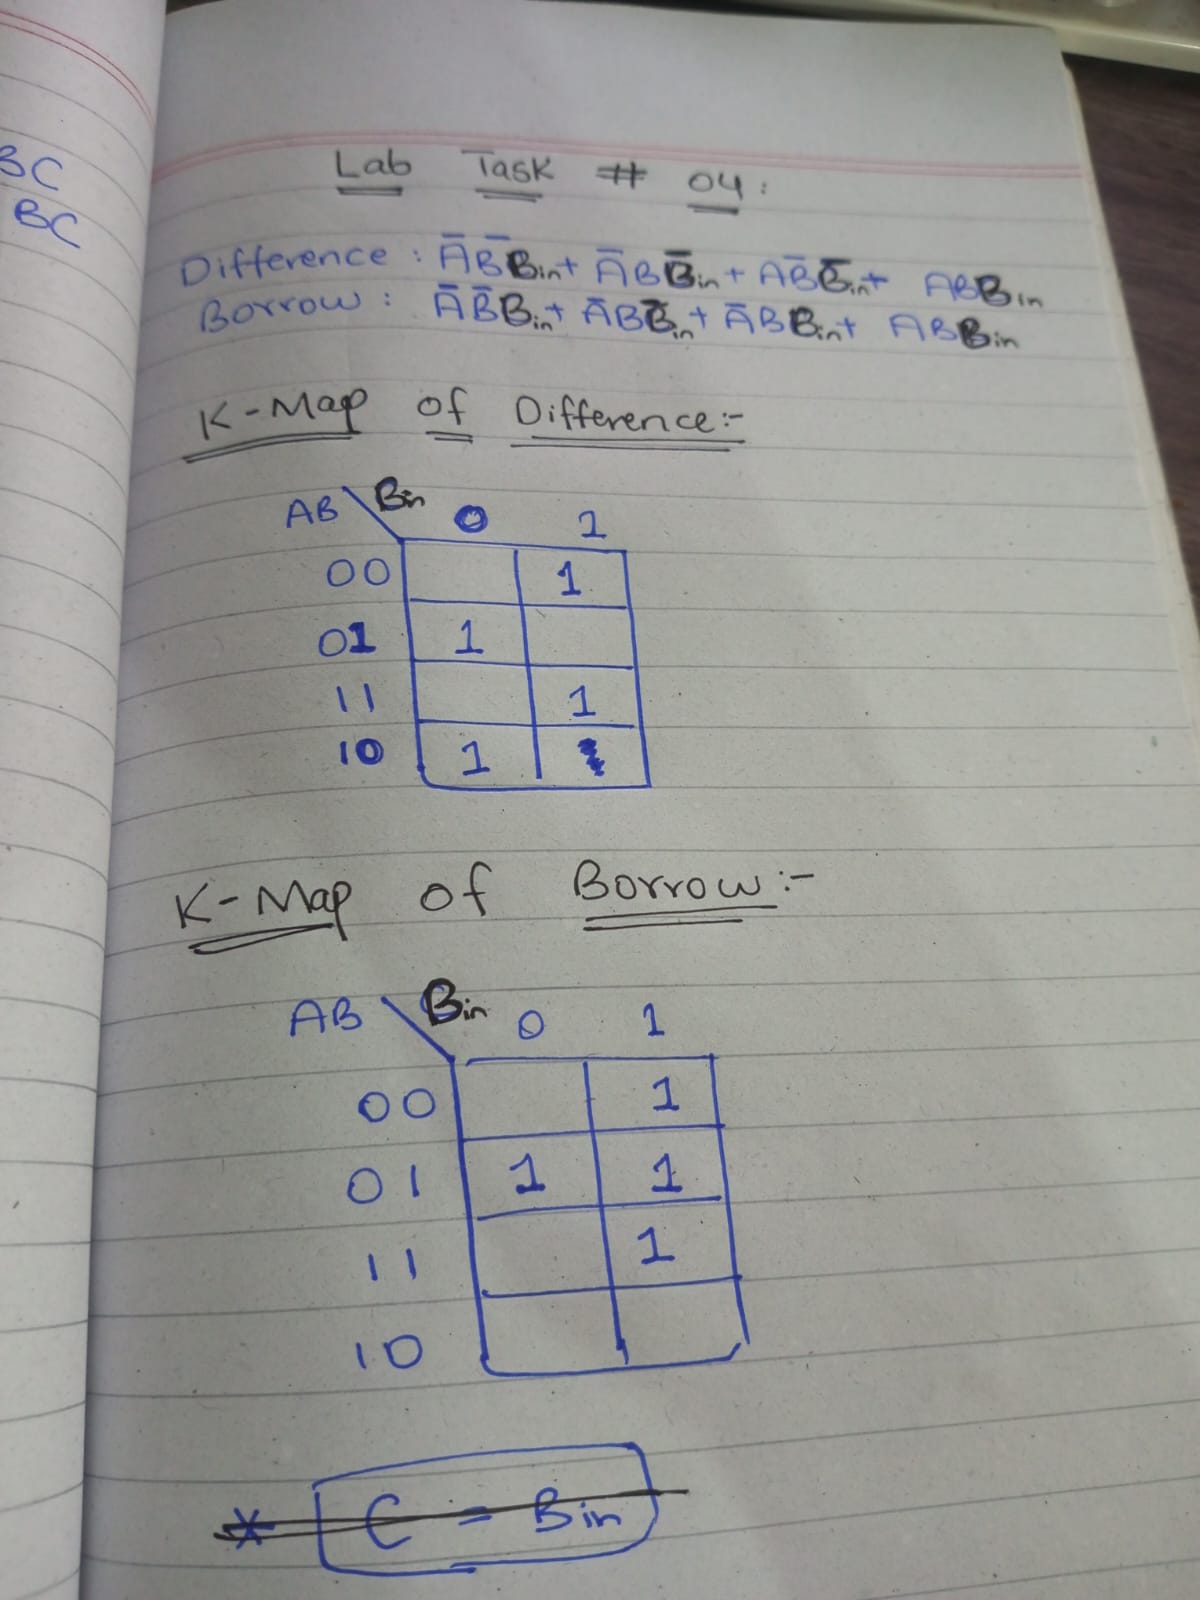 BC
BC
Lab Task # 04:
Difference : A̅B̅Bin + A̅BB̅in + AB̅B̅in + ABBin
Borrow : A̅B̅Bin + A̅BB̅in + A̅BBin + ABBin
K-Map of Difference:-
AB \ Bin 0 1
00 1
01 1
11 1
10 1
K-Map of Borrow:-
AB \ Bin 0 1
00 1
01 1 1
11 1
10
* C = Bin